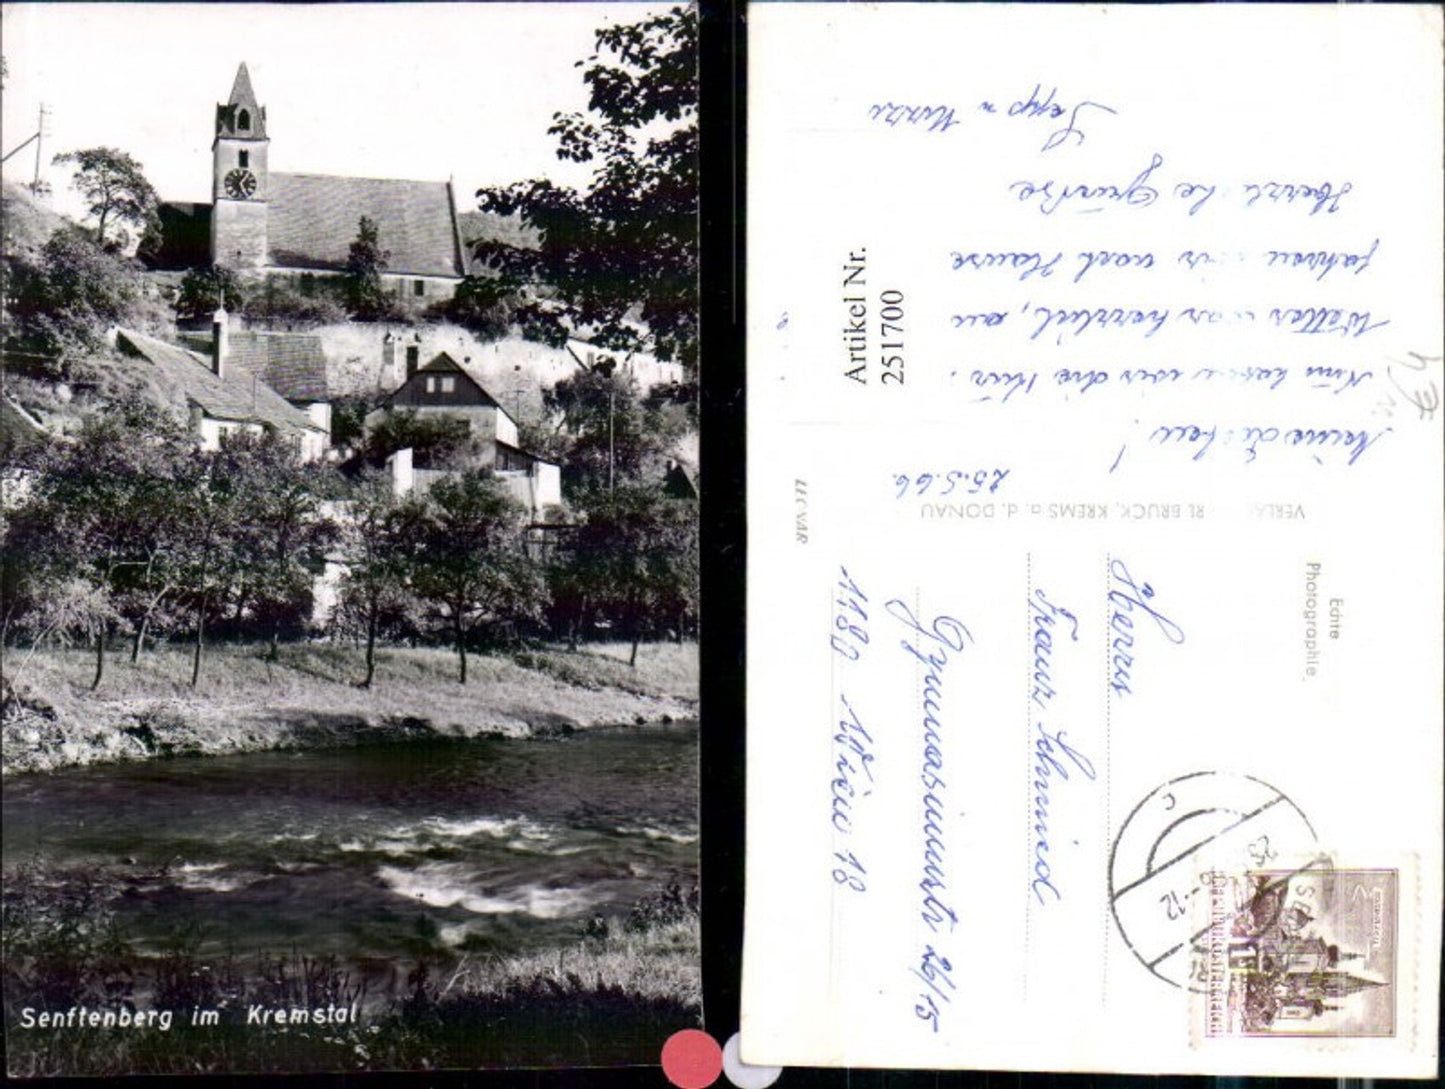 Senftenberg im Kremstal
Artikel Nr.
251700
25.5.66.
Nun haben wir die Kur.
Wetter war herrlich, am
fahren wir nach Hause
Herzliche Grüsse
Sepp u
VERLAG BRUCK, KREMS a. d. DONAU
Echte
Photographie
Herrn
Franz Schmied
Gymnasiumstr 26/15
1180 Wien 18
REPUBLIK ÖSTERREICH